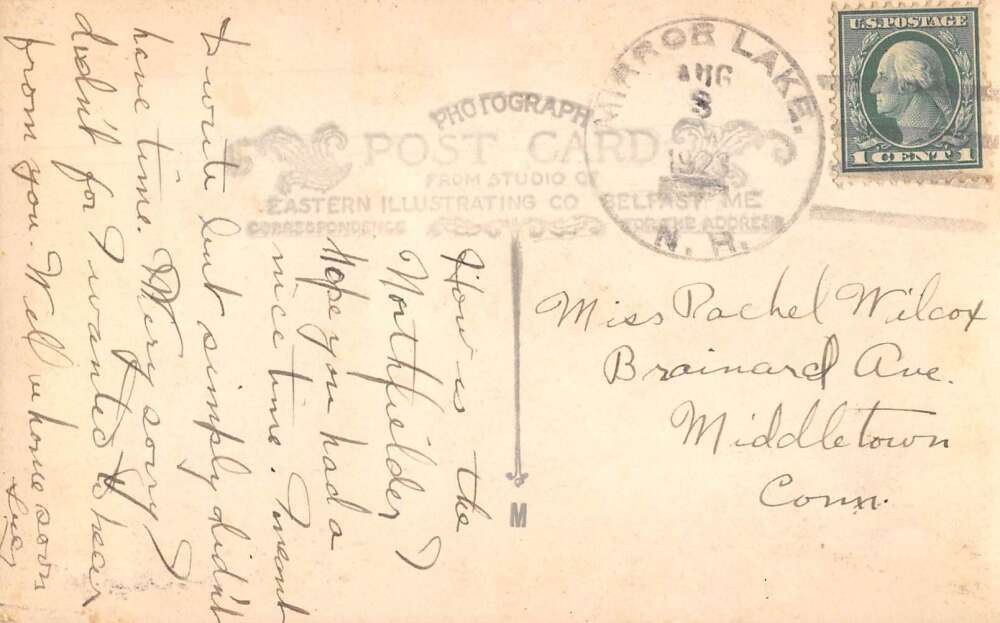 U.S. POSTAGE
1 CENT 1
MIRROR LAKE.
AUG
8
1923
N. H.
PHOTOGRAPH
POST CARD
FROM STUDIO OF
EASTERN ILLUSTRATING CO BELFAST ME
CORRESPONDENCE
FOR THE ADDRESS
M
How is the
Northfielder?
Hope you had a
nice time. I meant
to write but simply didn't
have time. Very sorry I
didn't for I wanted to hear
from you. Will be home soon
Miss Rachel Wilcox
Brainard Ave.
Middletown
Conn.